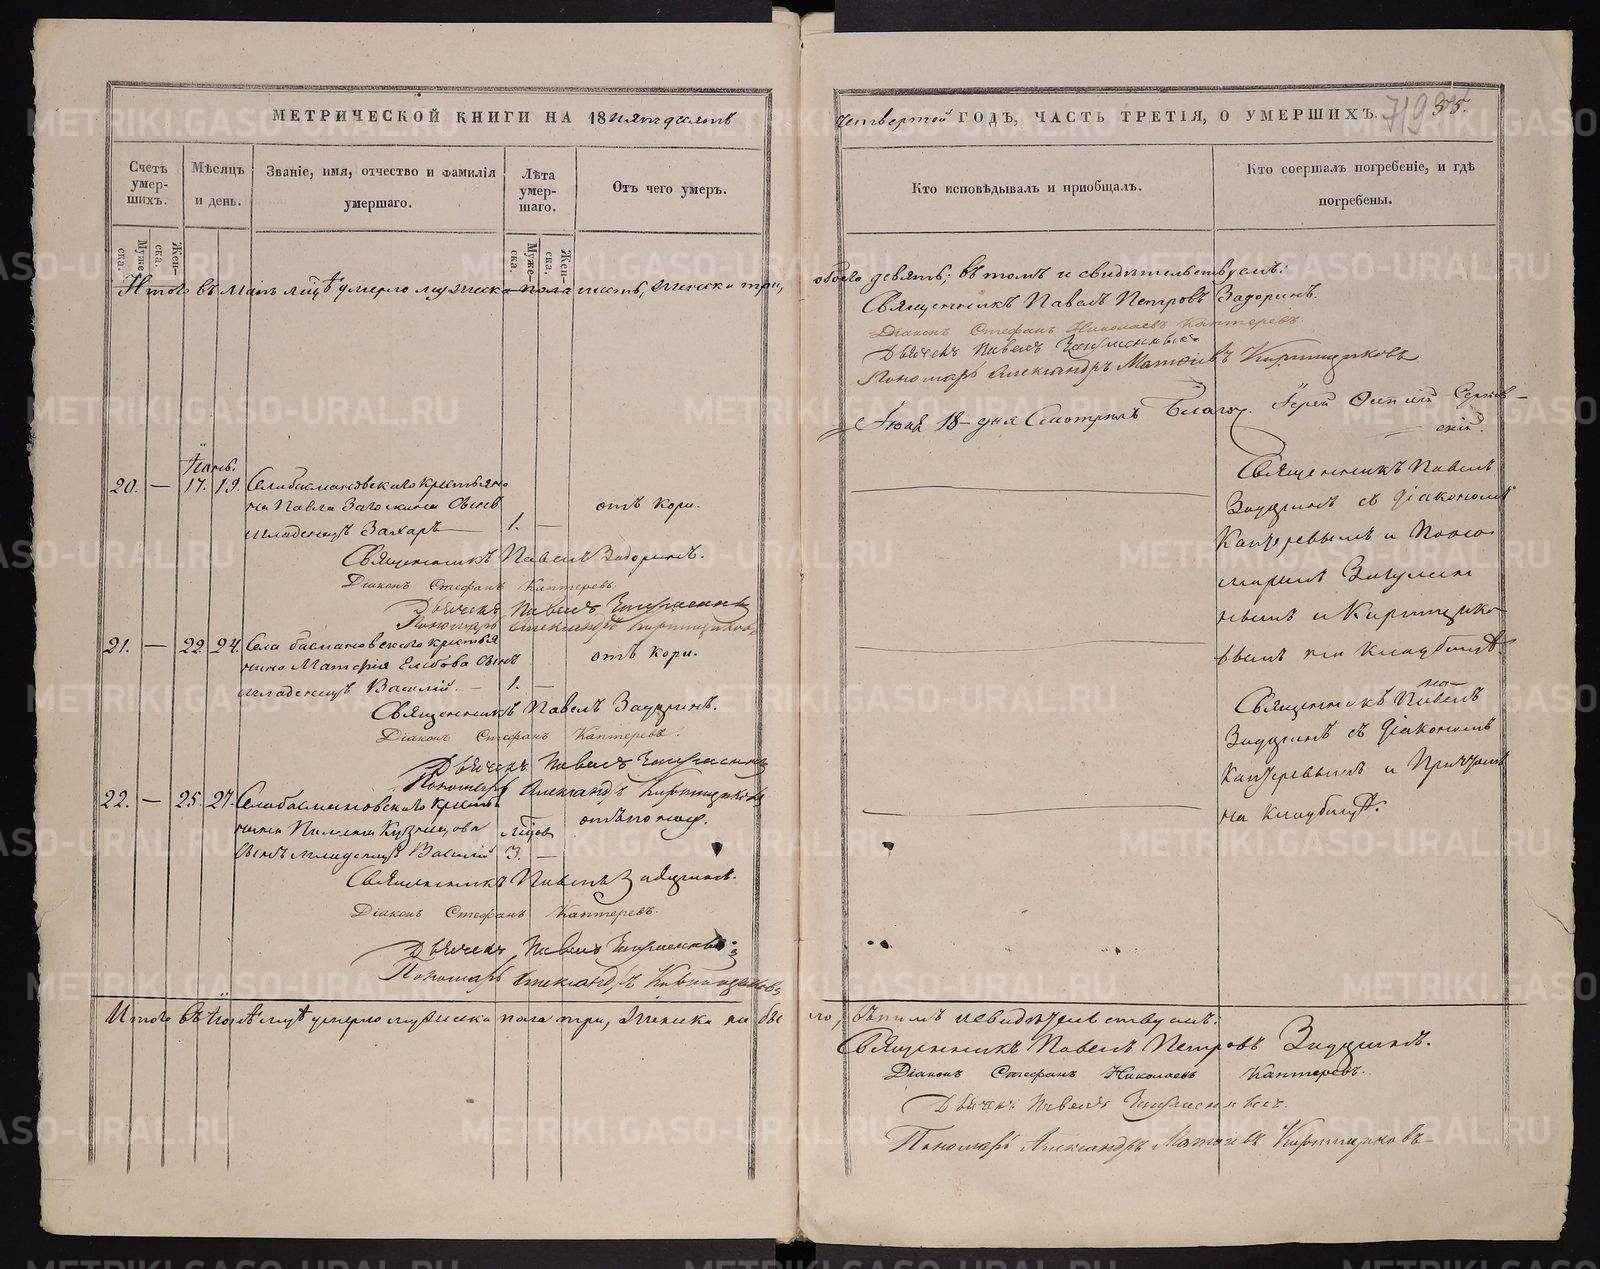 МЕТРИЧЕСКОЙ КНИГИ НА 18пятдесятъ
Счетъ умер-шихъ.
Мѣсяцъ и день.
Званіе, имя, отчество и фамилія умершаго.
Лѣта умер-шаго.
Отъ чего умеръ.
Муже-ска.
Жен-ска.
Муже-ска.
Жен-ска.
Итого въ Маіѣ м͠цѣ умерло мужеска пола шесть, женска три,
Іюнь.
20. — 17. 19. Села басмановскаго крестьяни-
на Павла сынъ
младенецъ Захаръ 1. —
отъ кори.
Священникъ Павелъ Задоринъ.
Діаконъ Стефанъ Каптеревъ.
Дьячекъ Павелъ
Пономарь Александръ Кирпищиковъ
21. — 22. 24. Села басмановскаго крестья
нина Матфея сынъ
младенецъ Василій. — 1. —
отъ кори.
Священникъ Павелъ Задоринъ.
Діаконъ Стефанъ Каптеревъ.
Дьячекъ Павелъ
Пономарь Александръ Кирпищиковъ
22. — 25. 27. Села басмановскаго крестья
нина Кузнецова
сынъ младенецъ Василій 3. —
Священникъ Павелъ Задоринъ.
Діаконъ Стефанъ Каптеревъ.
Дьячекъ Павелъ
Пономарь Александръ Кирпищиковъ
Итого въ Іюнѣ м͠цѣ умерло мужеска пола три, женска не бы
четвертой ГОДЪ, ЧАСТЬ ТРЕТІЯ, О УМЕРШИХЪ.
719 55.
Кто исповѣдывалъ и приобщалъ.
Кто соершалъ погребеніе, и гдѣ погребены.
обоего девять; въ томъ и свидѣтельствуемъ:
Священникъ Павелъ Петровъ Задоринъ.
Діаконъ Стефанъ Николаевъ Каптеревъ.
Дьячекъ Павелъ
Пономарь Александръ Матѳіевъ Кирпищиковъ
Іюля 18 дня Смотрилъ Благоч. Іерей
Священникъ Павелъ
Задоринъ съ Діакономъ
Каптеревымъ и Поно
маремъ
нымъ и Кирпищико
вымъ на кладбищѣ.
Священникъ Павелъ
Задоринъ съ Діакономъ
Каптеревымъ и Причтомъ
на кладбищѣ.
ло, въ томъ и свидѣтельствуемъ:
Священникъ Павелъ Петровъ Задоринъ.
Діаконъ Стефанъ Николаевъ Каптеревъ.
Дьячекъ Павелъ
Пономарь Александръ Матѳіевъ Кирпищиковъ
METRIKI.GASO-URAL.RU